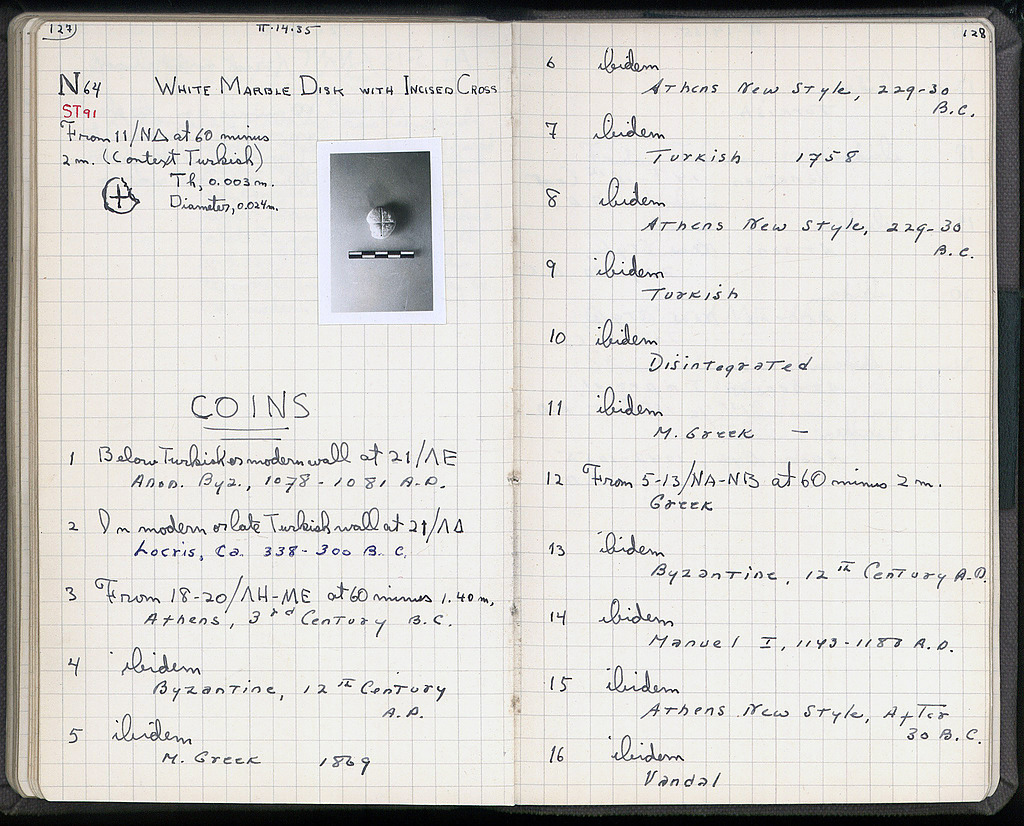 127
II·14·35
N64 WHITE MARBLE DISK WITH INCISED CROSS
ST91
From 11/ΝΔ at 60 minus
2 m. (Context Turkish)
Th, 0.003 m.
Diameter, 0.024 m.
COINS
1 Below Turkish or modern wall at 21/ΛΕ
Anon. Byz., 1078-1081 A.D.
2 In modern or late Turkish wall at 21/ΛΔ
Locris, Ca. 338-300 B.C.
3 From 18-20/ΛΗ-ΜΕ at 60 minus 1.40 m,
Athens, 3rd Century B.C.
4 ibidem
Byzantine, 12th Century
A.D.
5 ibidem
M. Greek 1869
128
6 ibidem
Athens New Style, 229-30
B.C.
7 ibidem
Turkish 1758
8 ibidem
Athens New Style, 229-30
B.C.
9 ibidem
Turkish
10 ibidem
Disintegrated
11 ibidem
M. Greek —
12 From 5-13/ΝΑ-ΝΒ at 60 minus 2 m.
Greek
13 ibidem
Byzantine, 12th Century A.D.
14 ibidem
Manuel I, 1143-1180 A.D.
15 ibidem
Athens New Style, After
30 B.C.
16 ibidem
Vandal